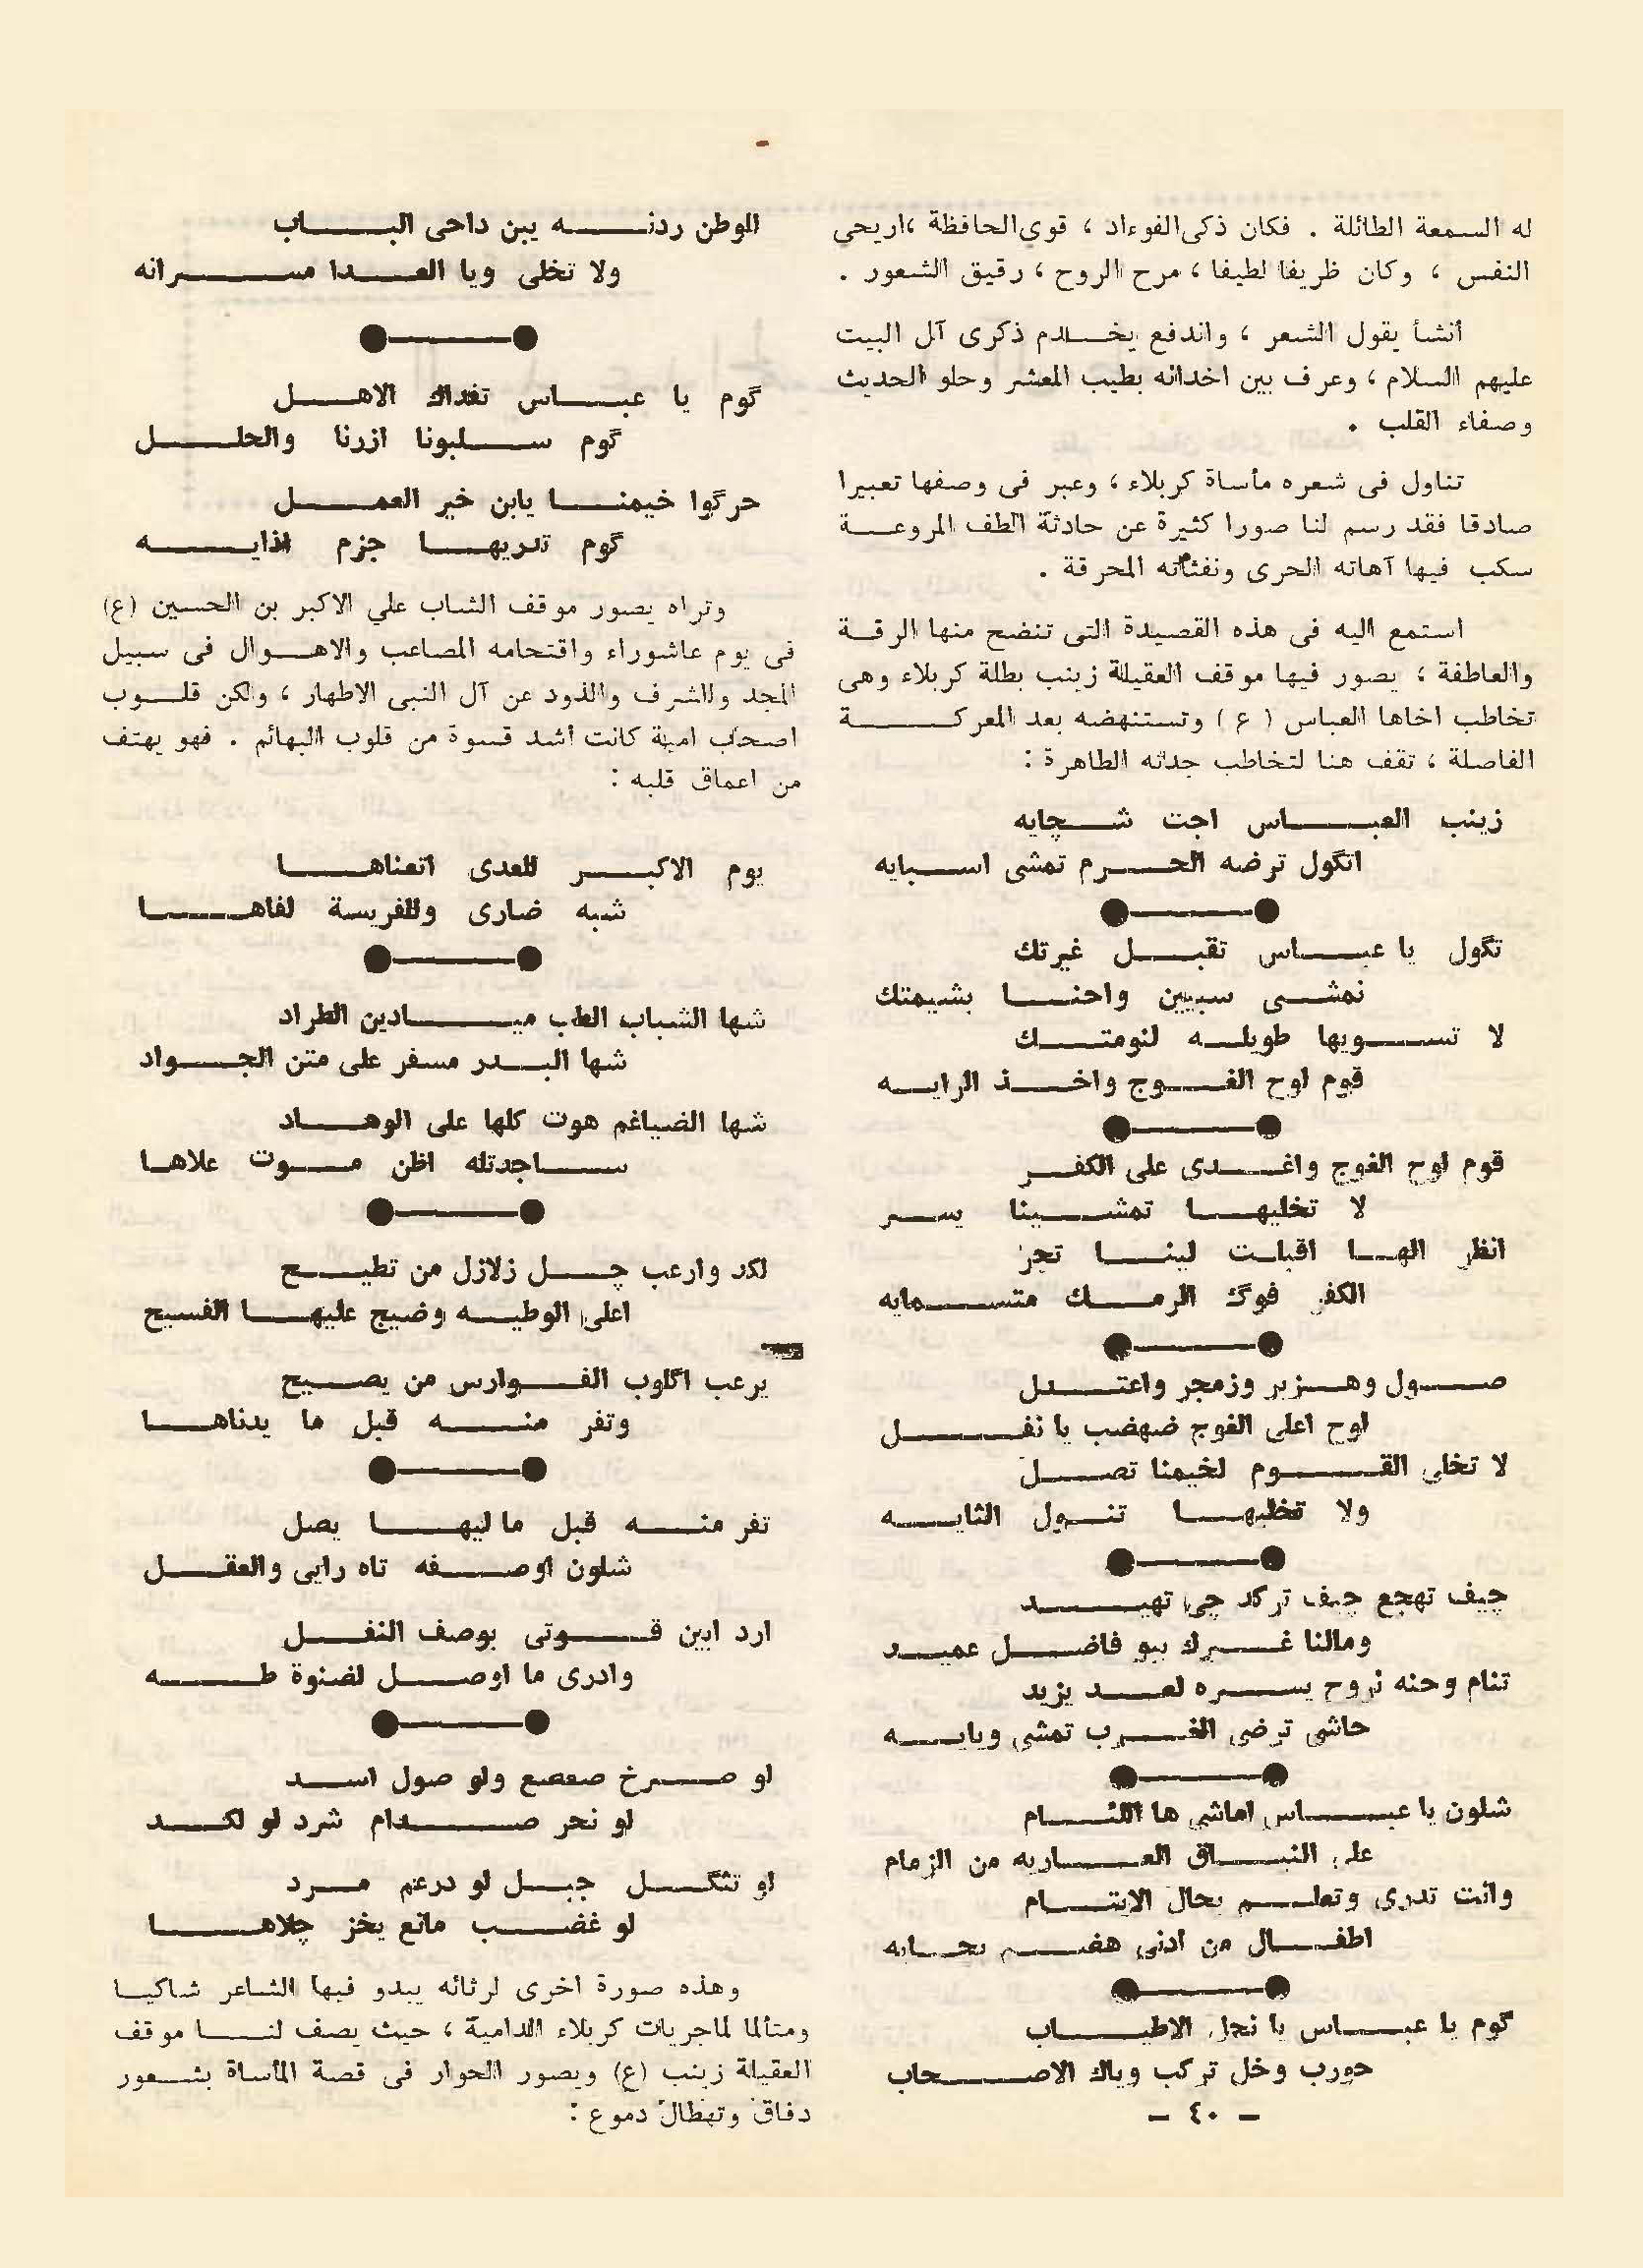 له السمعة الطائلة . فكان ذكى الفوءاد ، قوى الحافظة ،اريحى
النفس ، وكان ظريفا لطيفا ، مرح الروح ، رقيق الشعور .
أنشأ يقول الشعر ، واندفع يخدم ذكرى آل البيت
عليهم السلام ، وعرف بين اخدانه بطيب المعشر وحلو الحديث
وصفاء القلب .
تناول فى شعره مأساة كربلاء ، وعبر فى وصفها تعبيرا
صادقا فقد رسم لنا صورا كثيرة عن حادثة الطف المروعة
سكب فيها آهاته الحرى ونفثاته المحرقة .
استمع اليه فى هذه القصيدة التى تنضح منها الرقة
والعاطفة ، يصور فيها موقف العقيلة زينب بطلة كربلاء وهى
تخاطب اخاها العباس ( ع ) وتستنهضه بعد المعركة
الفاصلة ، تقف هنا لتخاطب جدثه الطاهرة :
زينب العباس اجت شچايه
اتگول ترضه الحرم تمشى اسبايه
تگول يا عباس تقبل غيرتك
نمشى سبيين واحنا بشيمتك
لا تسويها طويله لنومتك
قوم لوح الفوج واخذ الرايه
قوم لوح الفوج واغدى على الكفر
لا تخليها تمشينا يسر
انظر الها اقبلت لينا تجر
الكفر فوگ الرمك متسمايه
صول وهزبر وزمجر واعتدل
لوح اعلى الفوج ضهضب يا نفل
لا تخلى القوم لخيمنا تصل
ولا تخليها تنول الثايه
چيف تهجع چيف تركد چى تهيد
ومالنا غيرك بيو فاضل عميد
تنام وحنه نروح يسره لعد يزيد
حاشى ترضى الغرب تمشى ويايه
شلون يا عباس اماشى ها اللئام
على النياق العاريه من الزمام
وانت تدرى وتعلم بحال الايتام
اطفال من ادنى هضم
گوم يا عباس يا نجل الاطياب
حورب وخل تركب وياك الاصحاب
– ٤٠ –
الموطن ردنه يبن داحى الباب
ولا تخلى ويا العدا مسرانه
گوم يا عباس تفداك الاهل
گوم سلبونا ازرنا والحلل
حرگوا خيمنا يابن خير العمل
گوم تدريها جزم اذايه
وتراه يصور موقف الشاب علي الاكبر بن الحسين (ع)
فى يوم عاشوراء واقتحامه المصاعب والاهوال فى سبيل
المجد والشرف والذود عن آل النبى الاطهار ، ولكن قلوب
اصحاب امية كانت أشد قسوة من قلوب البهائم . فهو يهتف
من اعماق قلبه :
يوم الاكبر للعدى اتعناها
شبه ضارى وللفريسة لفاها
شها الشباب الطب ميادين الطراد
شها البدر مسفر على متن الجواد
شها الضياغم هوت كلها على الوهاد
ساجدتله اظن موت علاها
لكد وارعب چل زلازل من تطيح
اعلى الوطيه وضيج عليها الفسيح
يرعب اگلوب الفوارس من يصيح
وتفر منه قبل ما يدناها
تفر منه قبل ما ليها يصل
شلون اوصفه تاه رايى والعقل
ارد ابين قوتى بوصف النفل
وادرى ما اوصل لصنوة طه
لو صرخ صعصع ولو صول اسد
لو نحر صدام شرد لو لكد
لو تثگل جبل لو درعم مرد
لو غضب مانع يخز چلاها
وهذه صورة اخرى لرثائه يبدو فيها الشاعر شاكيا
ومتألما لماجريات كربلاء الدامية ، حيث يصف لنا موقف
العقيلة زينب (ع) ويصور الحوار فى قصة المأساة بشعور
دفاق وتهطال دموع :